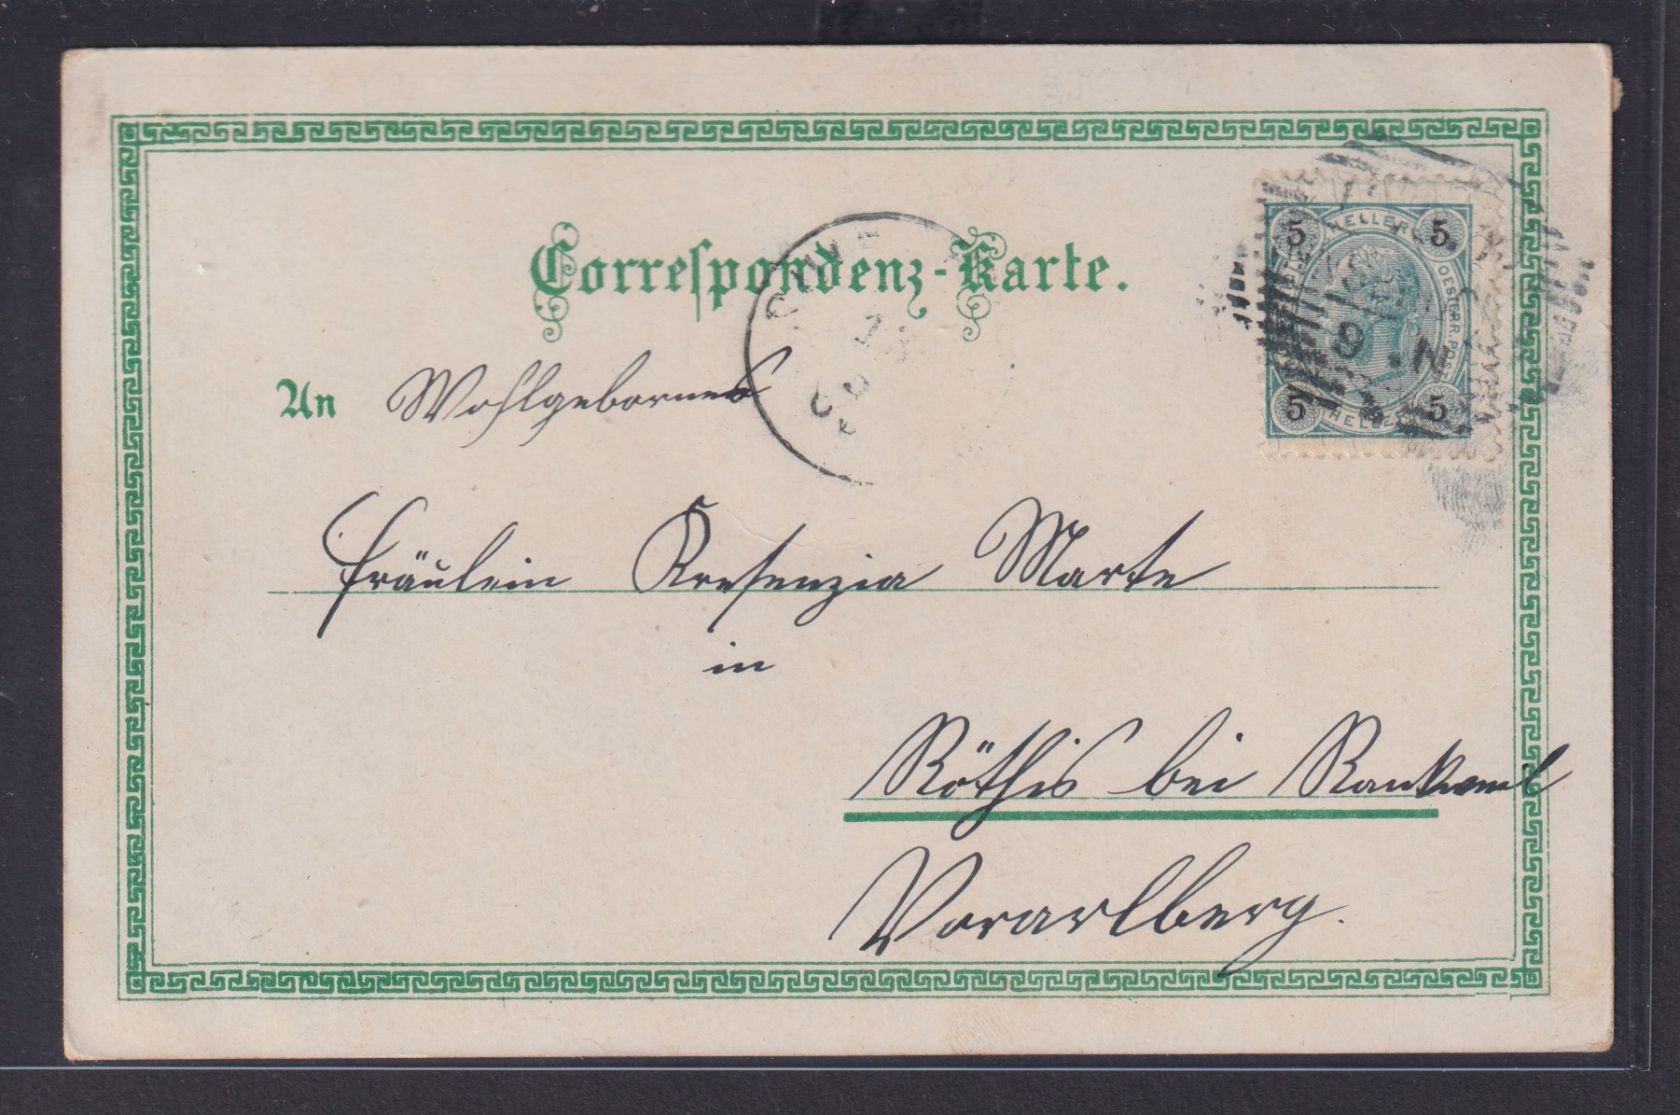 Correspondenz-Karte.
An Wohlgebornes
Fräulein Kresenzia Marte
in
Röthis bei Rankweil
Vorarlberg.
5 HELLER 5
OESTERR. POST
5 HELLER 5